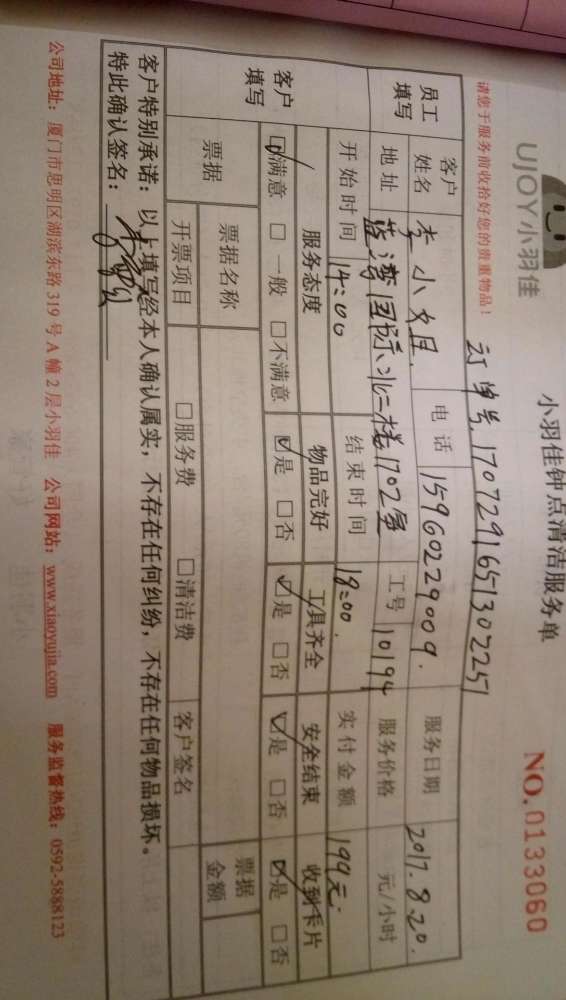 UJOY小羽佳
小羽佳钟点清洁服务单
NO.0133060
请您于服务前收拾好您的贵重物品！
订单号.1707291651302251
员工填写 客户姓名 李小姐. 电话 15960229009. 服务日期 2017.8.20.
地址 蓝湾国际北二楼1702室 工号 10194 服务价格 元/小时
开始时间 14:00 结束时间 18:00. 实付金额 194元.
客户填写 服务态度 物品完好 工具齐全 安全结束 收到卡片
☑满意 □一般 □不满意 ☑是 □否 ☑是 □否 ☑是 □否 ☑是 □否
票据 票据名称 票据金额
开票项目 □服务费 □清洁费 客户签名
客户特别承诺：以上填写经本人确认属实，不存在任何纠纷，不存在任何物品损坏。
特此确认签名：
公司地址：厦门市思明区湖滨东路 319 号 A 幢 2 层小羽佳 公司网站：www.xiaoyujia.com 服务监督热线：0592-5888123